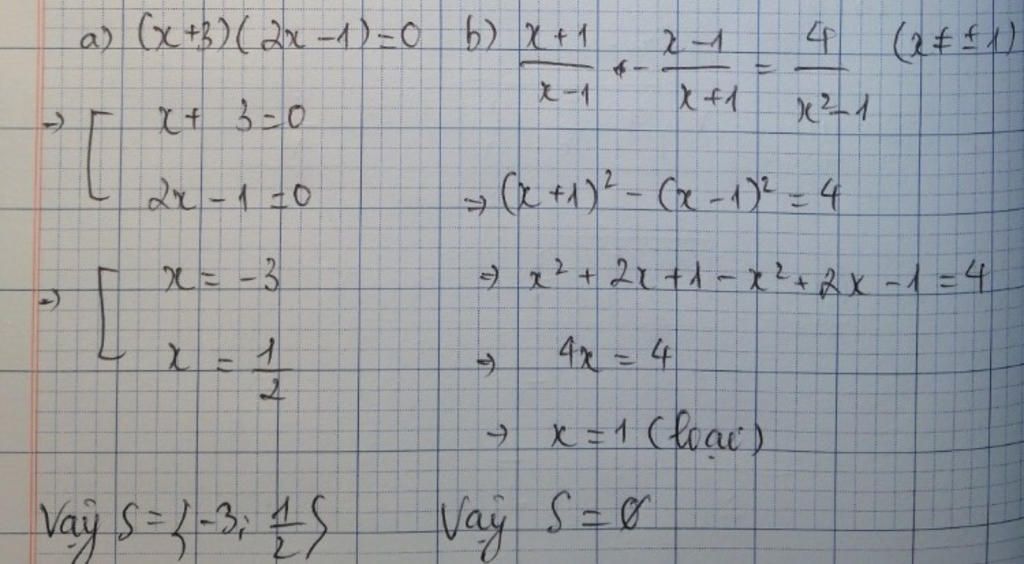 a) (x+3)(2x-1)=0
→ [ x+3=0
2x-1=0
→ [ x=-3
x = 1/2
Vaỵ̃ S={-3; 1/2}
b) (x+1)/(x-1) - (x-1)/(x+1) = 4/(x²-1) (x≠±1)
→ (x+1)² - (x-1)² = 4
→ x²+2x+1-x²+2x-1=4
→ 4x=4
→ x=1 (loại)
Vaỵ̃ S=Ø